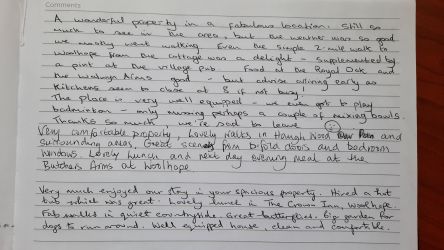 Comments
A wonderful property in a fabulous location. Still so
much to see in the area, but the weather was so good
we mostly went walking. Even the simple 2-mile walk to
Woolhope from the cottage was a delight - supplemented by
a pint at the village pub. Food at the Royal Oak and
the Arms good - but advise arriving early as
kitchens seem to close at 8 if not busy!
The place is very well equipped - we even got to play
badminton - only missing perhaps a couple of mixing bowls.
Thanks so much - we're sad to leave
Very comfortable property, Lovely walks in and
surrounding areas, Great from bifold doors and bedroom
windows. Lovely lunch and next day evening meal at the
Butchers Arms at Woolhope
Very much enjoyed our stay in your spacious property. Hired a hot
tub which was great. Lovely lunch in The Crown Inn, Woolhope.
Fab walks in quiet countryside. Great butterflies. Big garden for
dogs to run around. Well equipped house, clean and comfortable.